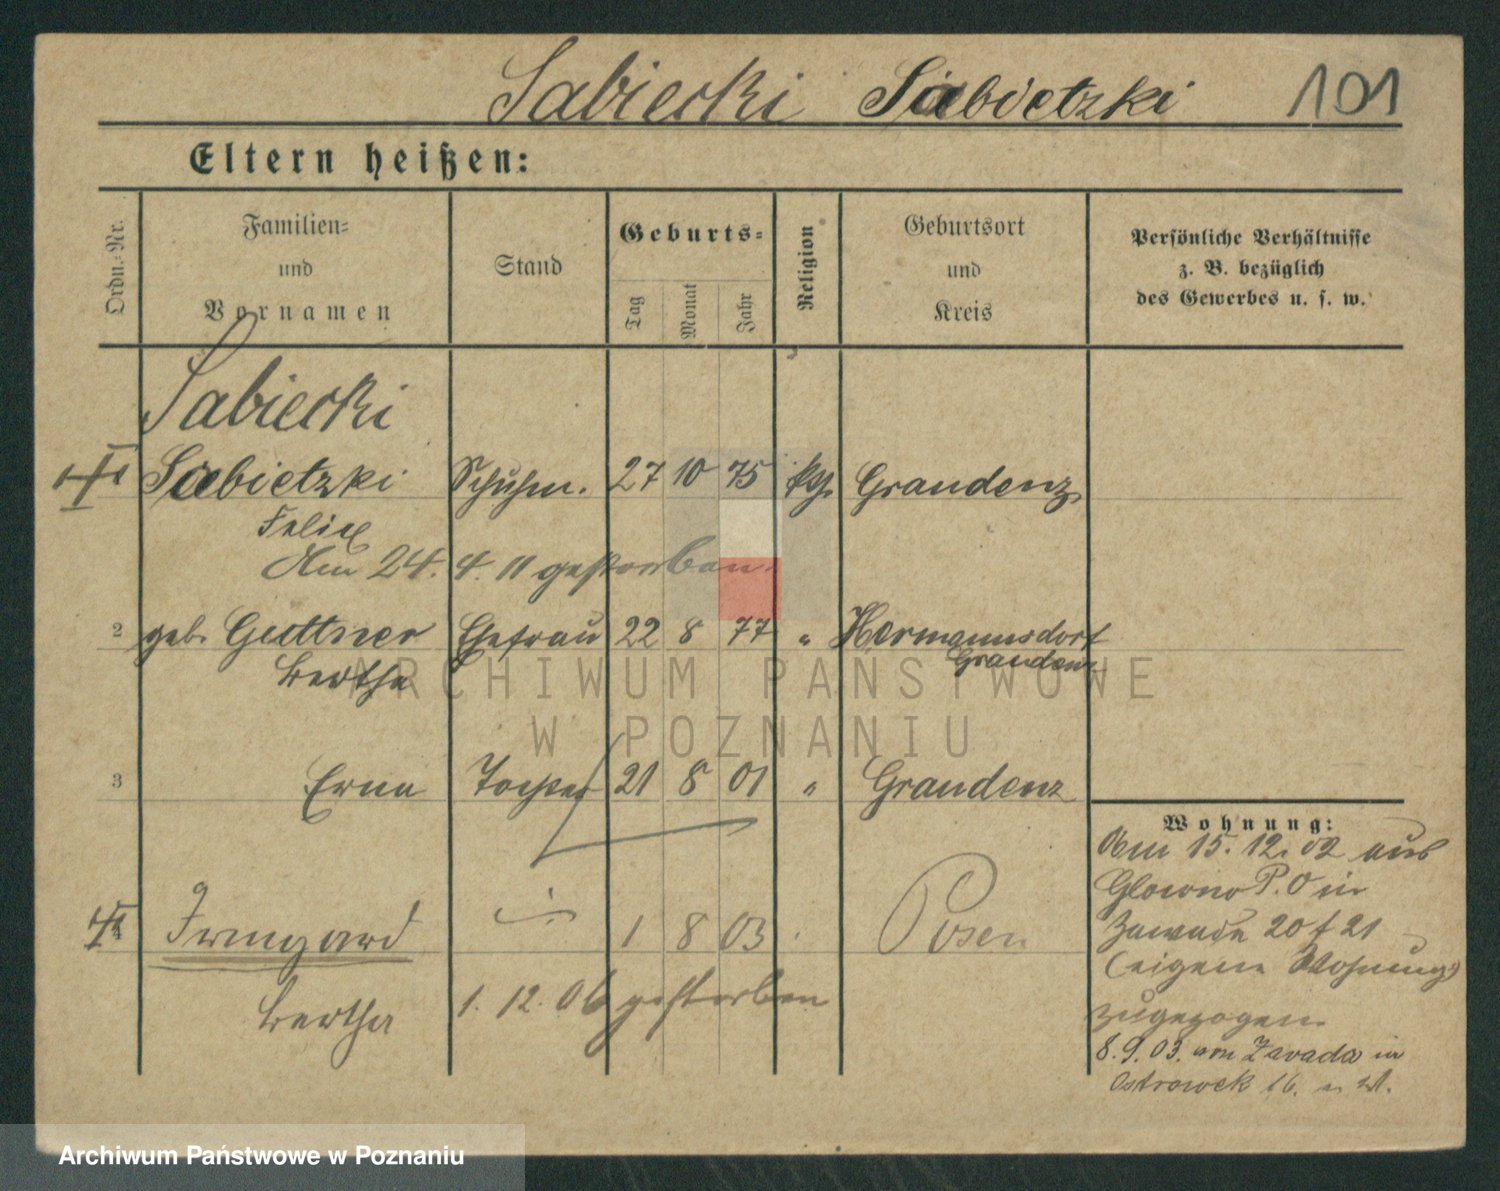 Sabiecki Siebietzki 101
Eltern heißen:
Ordn.-Nr.
Familien- und Vornamen
Stand
Geburts-
Tag
Monat
Jahr
Religion
Geburtsort und Kreis
Persönliche Verhältnisse
z. B. bezüglich
des Gewerbes u. s. w.
Sabiecki
Siebietzki Schuhm. 27 10 75 kth. Graudenz
Felix
Am 24. 4. 11 gestorben.
2 geb. Guttner Ehefrau 22 8 77 " Hermannsdorf
Bertha Graudenz
3 Erna Tochter 21 8 01 " Graudenz
4 Irmgard 1 8 03 Posen
Bertha 1. 12. 06 gestorben
Wohnung:
Am 15. 12. 02 aus
Glowno P. O in
Zawade 20/21
(eigene Wohnung)
zugezogen.
8. 9. 03. von Zavada in
Ostrowek 16.
ARCHIWUM PAŃSTWOWE
W POZNANIU
Archiwum Państwowe w Poznaniu